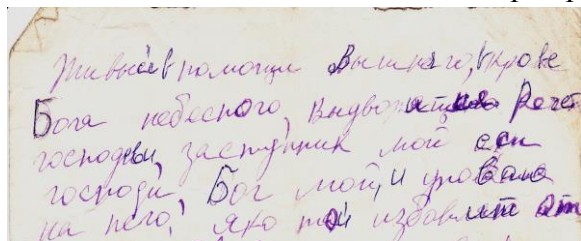 Живыи в помощи Вышняго, в крове
Бога небесного, Речет
господеви, заступник мой еси
господи, Бог мой, и уповаю
на него, яко той избавит от